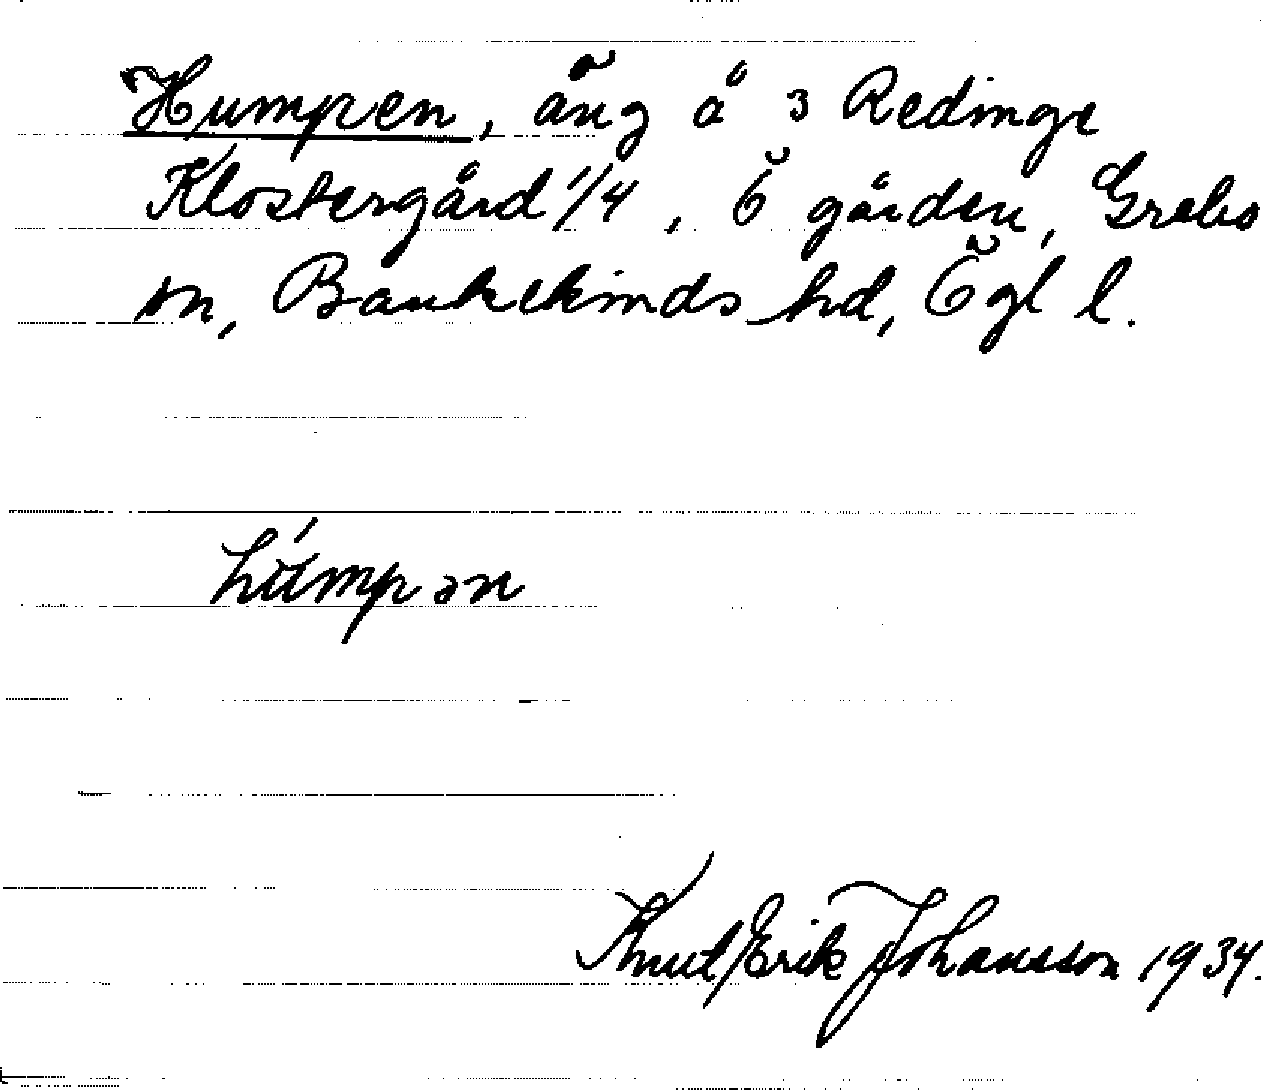 Humpen, äng å 3 Redinge
Klostergård 1/4, Ö gården, Grebo
sn, Bankekinds hd, Ögl l.
húmpən
Knut Erik Johansson 1934.